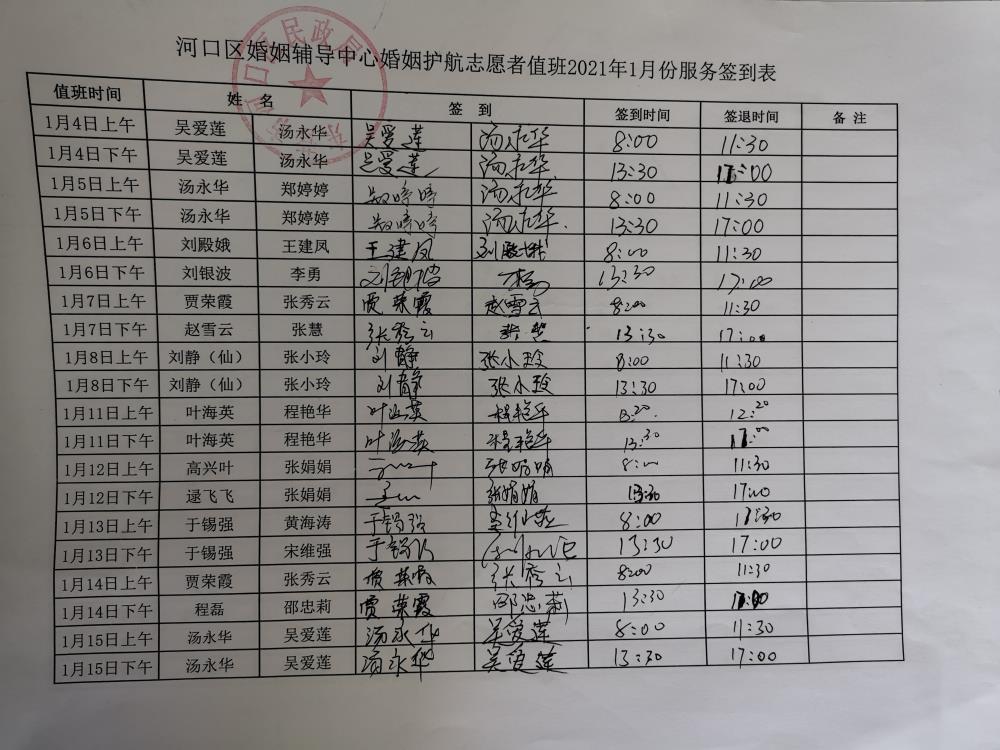 河口区婚姻辅导中心婚姻护航志愿者值班2021年1月份服务签到表
值班时间 姓 名 签 到 签到时间 签退时间 备 注
1月4日上午 吴爱莲 汤永华 吴爱莲 汤永华 8:00 11:30
1月4日下午 吴爱莲 汤永华 吴爱莲 汤永华 13:30 17:00
1月5日上午 汤永华 郑婷婷 郑婷婷 汤永华 8:00 11:30
1月5日下午 汤永华 郑婷婷 郑婷婷 汤永华 13:30 17:00
1月6日上午 刘殿娥 王建凤 王建凤 刘殿娥 8:00 11:30
1月6日下午 刘银波 李勇 刘银波 13:30 17:00
1月7日上午 贾荣霞 张秀云 贾荣霞 赵雪云 8:00 11:30
1月7日下午 赵雪云 张慧 张秀云 13:30 17:00
1月8日上午 刘静（仙） 张小玲 刘静 张小玲 8:00 11:30
1月8日下午 刘静（仙） 张小玲 刘静 张小玲 13:30 17:00
1月11日上午 叶海英 程艳华 叶海英 程艳华 12:20
1月11日下午 叶海英 程艳华 叶海英 程艳华 13:30 17:00
1月12日上午 高兴叶 张娟娟 张娟娟 8:00 11:30
1月12日下午 逯飞飞 张娟娟 张娟娟 13:30 17:00
1月13日上午 于锡强 黄海涛 于锡强 8:00 11:30
1月13日下午 于锡强 宋维强 于锡强 13:30 17:00
1月14日上午 贾荣霞 张秀云 贾荣霞 张秀云 8:00 11:30
1月14日下午 程磊 邵忠莉 贾荣霞 邵忠莉 13:30 17:00
1月15日上午 汤永华 吴爱莲 汤永华 吴爱莲 8:00 11:30
1月15日下午 汤永华 吴爱莲 汤永华 吴爱莲 13:30 17:00